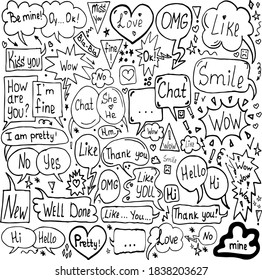 Be mine!
Oy...Ok!
Miss you!
Love
OMG
Like
Kiss you
Bla-bla
fine
Ok!
Wow
No
Smile
How
are
you?
I'm
fine
Chat
She
He
Chat
WOW
I am pretty!
Hm..
Wow
No
Yes
Like
Thank you
Smile
WOW
OMG
Like
YOU
Hello
Hi
Hi
New
WELL DONE
Like...You...
Thank you?
Hi
Hello
Pretty!
...
Love
No
mine
shutterstock.com · 1838203627